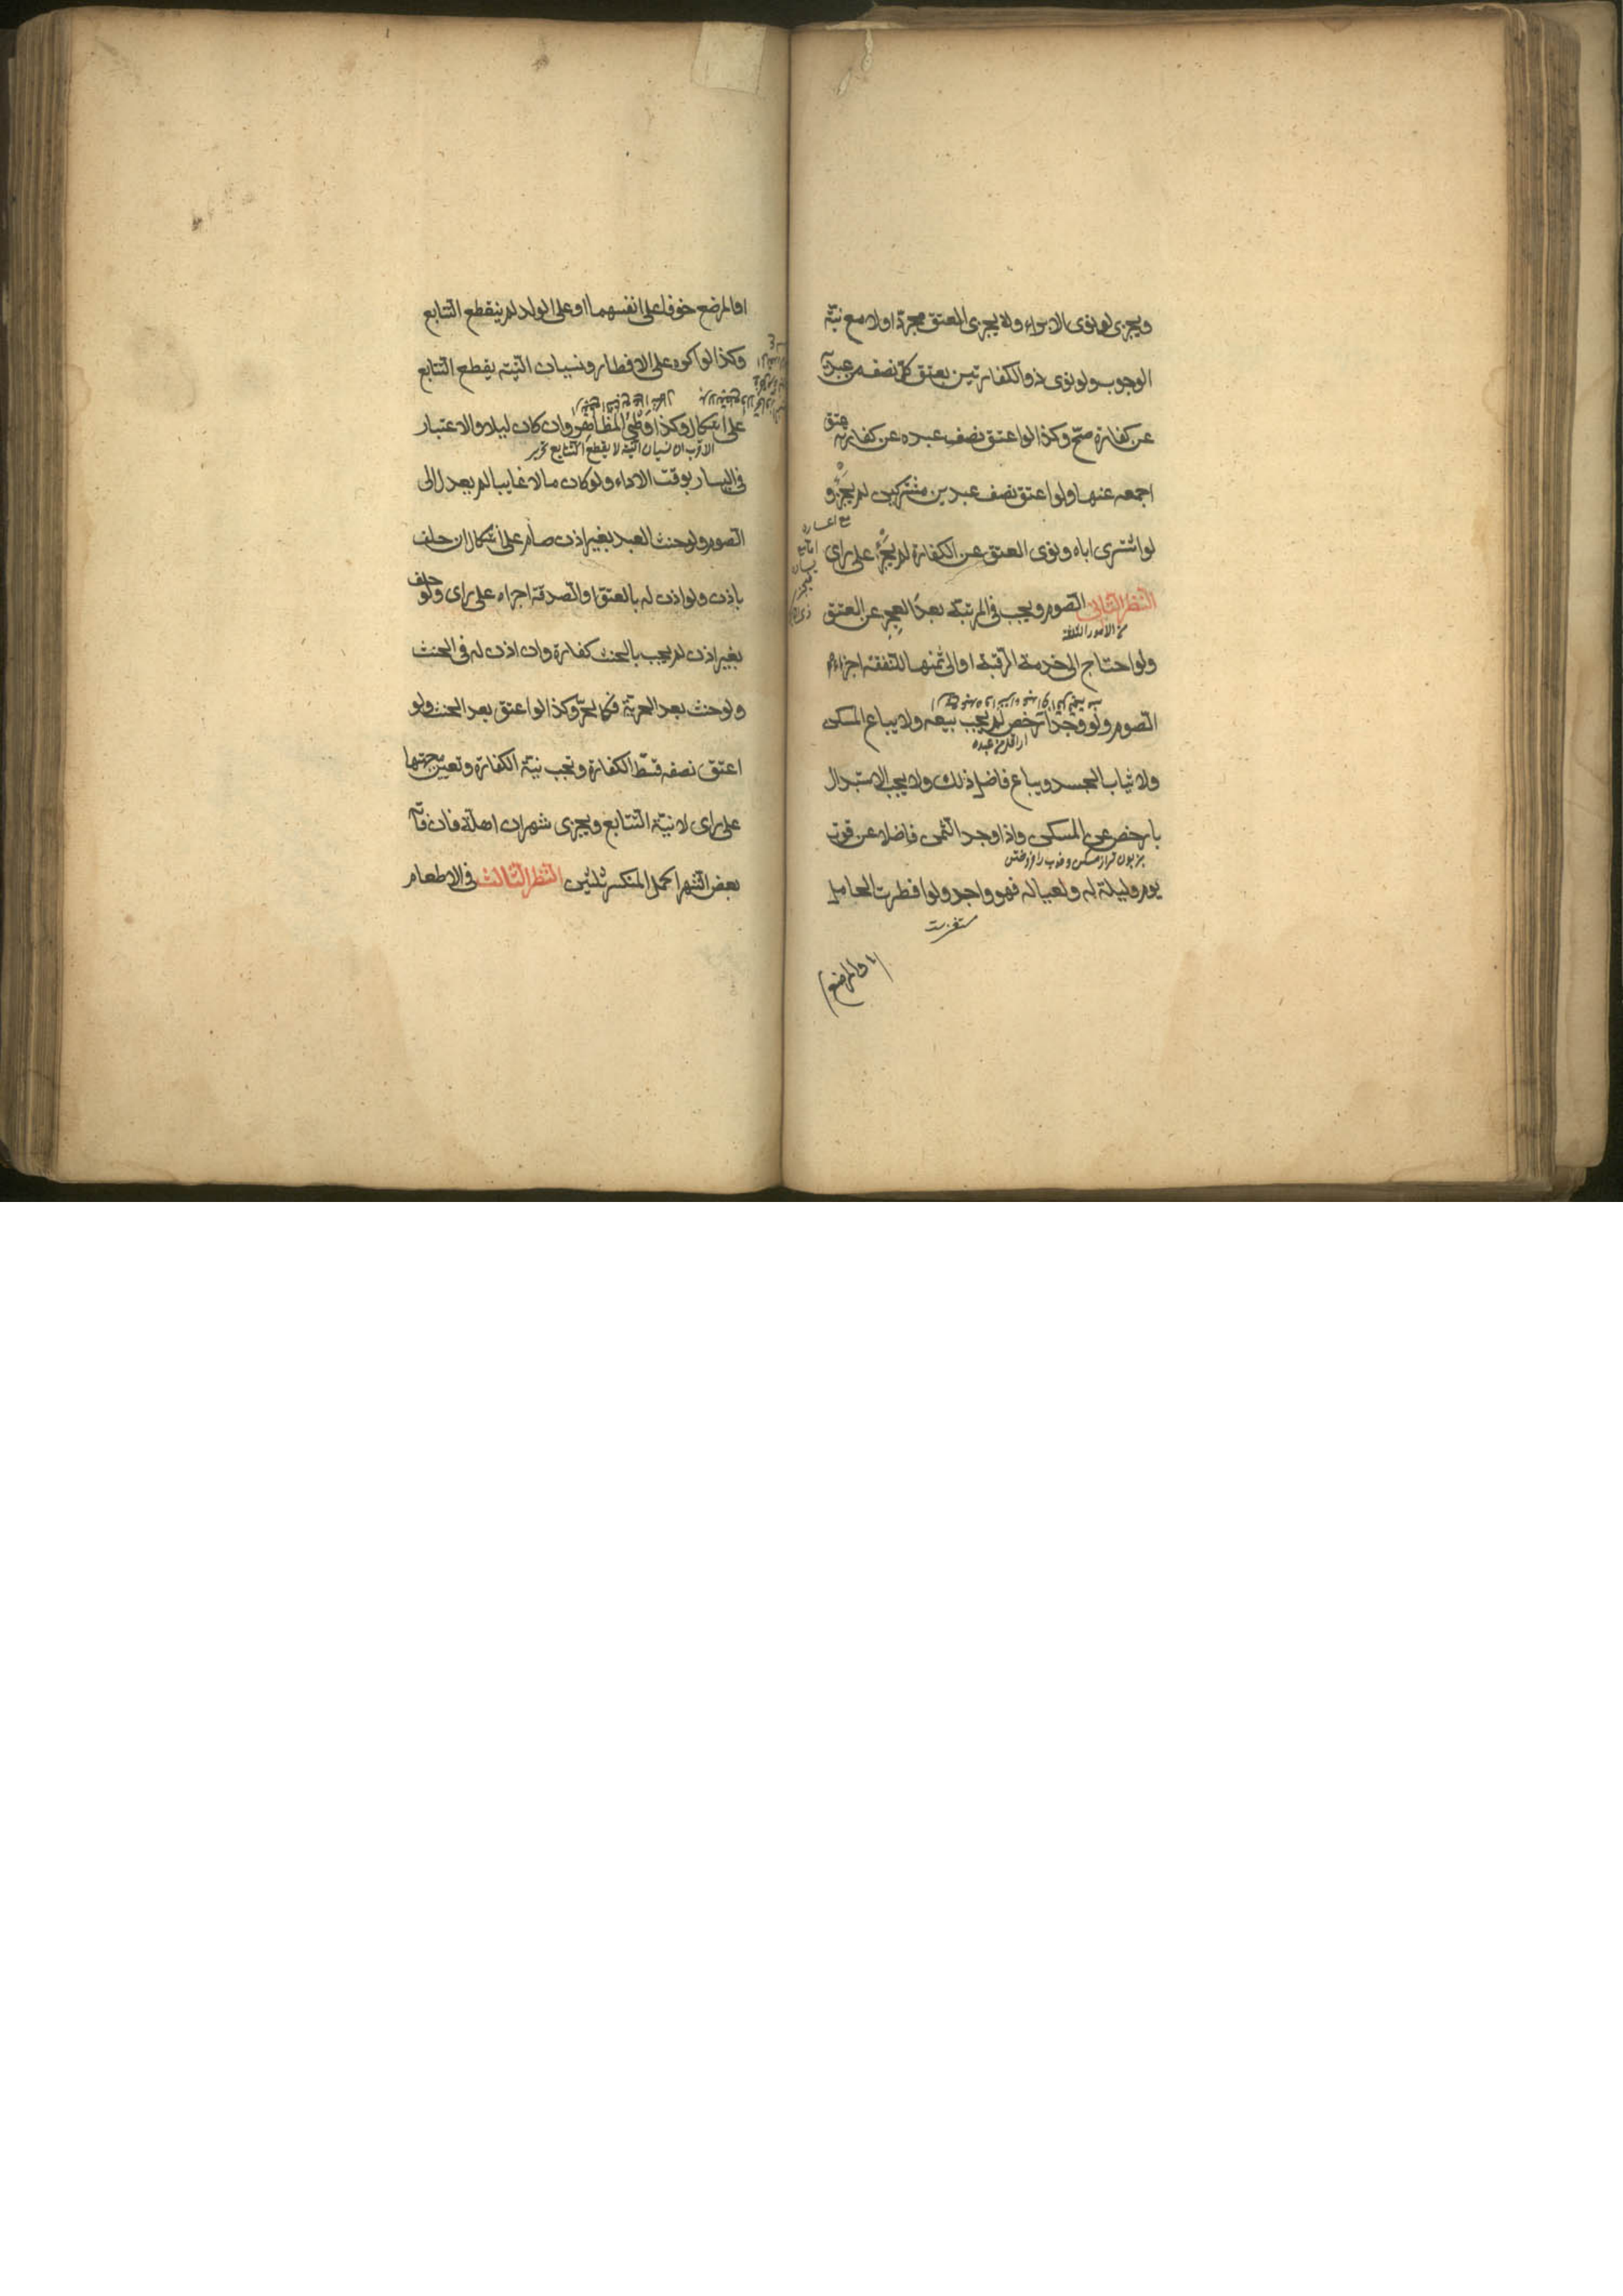 ويجزى لو نوى الابراء ولا يجزى العتق مجردا ولا مع نية
الوجوب ولو نوى ذو الكفارتين بعتق كل نصف من عبد
عن كفارة صح وكذا لو اعتق نصف عبده عن كفارته عتق
اجمعه عنها ولو اعتق نصف عبدين مشتركين لم يجز و
مع اعساره
لو اشترى اباه ونوى العتق عن الكفارة لم يجز على راى
النظر الثانى الصوم ويجب فى المرتبة بعد العجز عن العتق
من الامور الثلثة
ولو احتاج الى خدمة الرقبة او الى ثمنها للنفقة اجزاه
الصوم ولو وجدا رخص لم يجب بيعه ولا يباع المسكن
ولا ثياب الجسد ويباع فاضل ذلك ولا يجب الاستبدال
بارخص عن المسكن واذا وجد الثمن فاضلا عن قوت
يوم وليلة له ولعياله فهو واجد ولو افطرت الحامل
او المرضع
او المرضع خوفا على انفسهما او على الولد لم ينقطع التتابع
وكذا لو اكره على الافطار ونسيان النية يقطع التتابع
على اشكال وكذا وطئ المظاهر وان كان ليلا والاعتبار
الاقرب ان نسيان النية لا يقطع التتابع
فى اليسار بوقت الاداء ولو كان مالا غايبا لم يعدل الى
الصوم ولو حنث العبد بغير اذن صام على اشكال ان حلف
باذن ولو اذن له بالعتق او الصدقة اجزاه على راى ولو حلف
بغير اذن لم يجب بالحنث كفارة وان اذن له فى الحنث
ولو حنث بعد الحرية فكالحر وكذا لو اعتق بعد الحنث ولو
اعتق نصفه قسط الكفارة وتجب نية الكفارة وتعين جهتها
على راى لا نية التتابع ويجزى شهران اهلة فان فاته
بعض الشهر اكمل المنكسر ثلثين النظر الثالث فى الاطعام